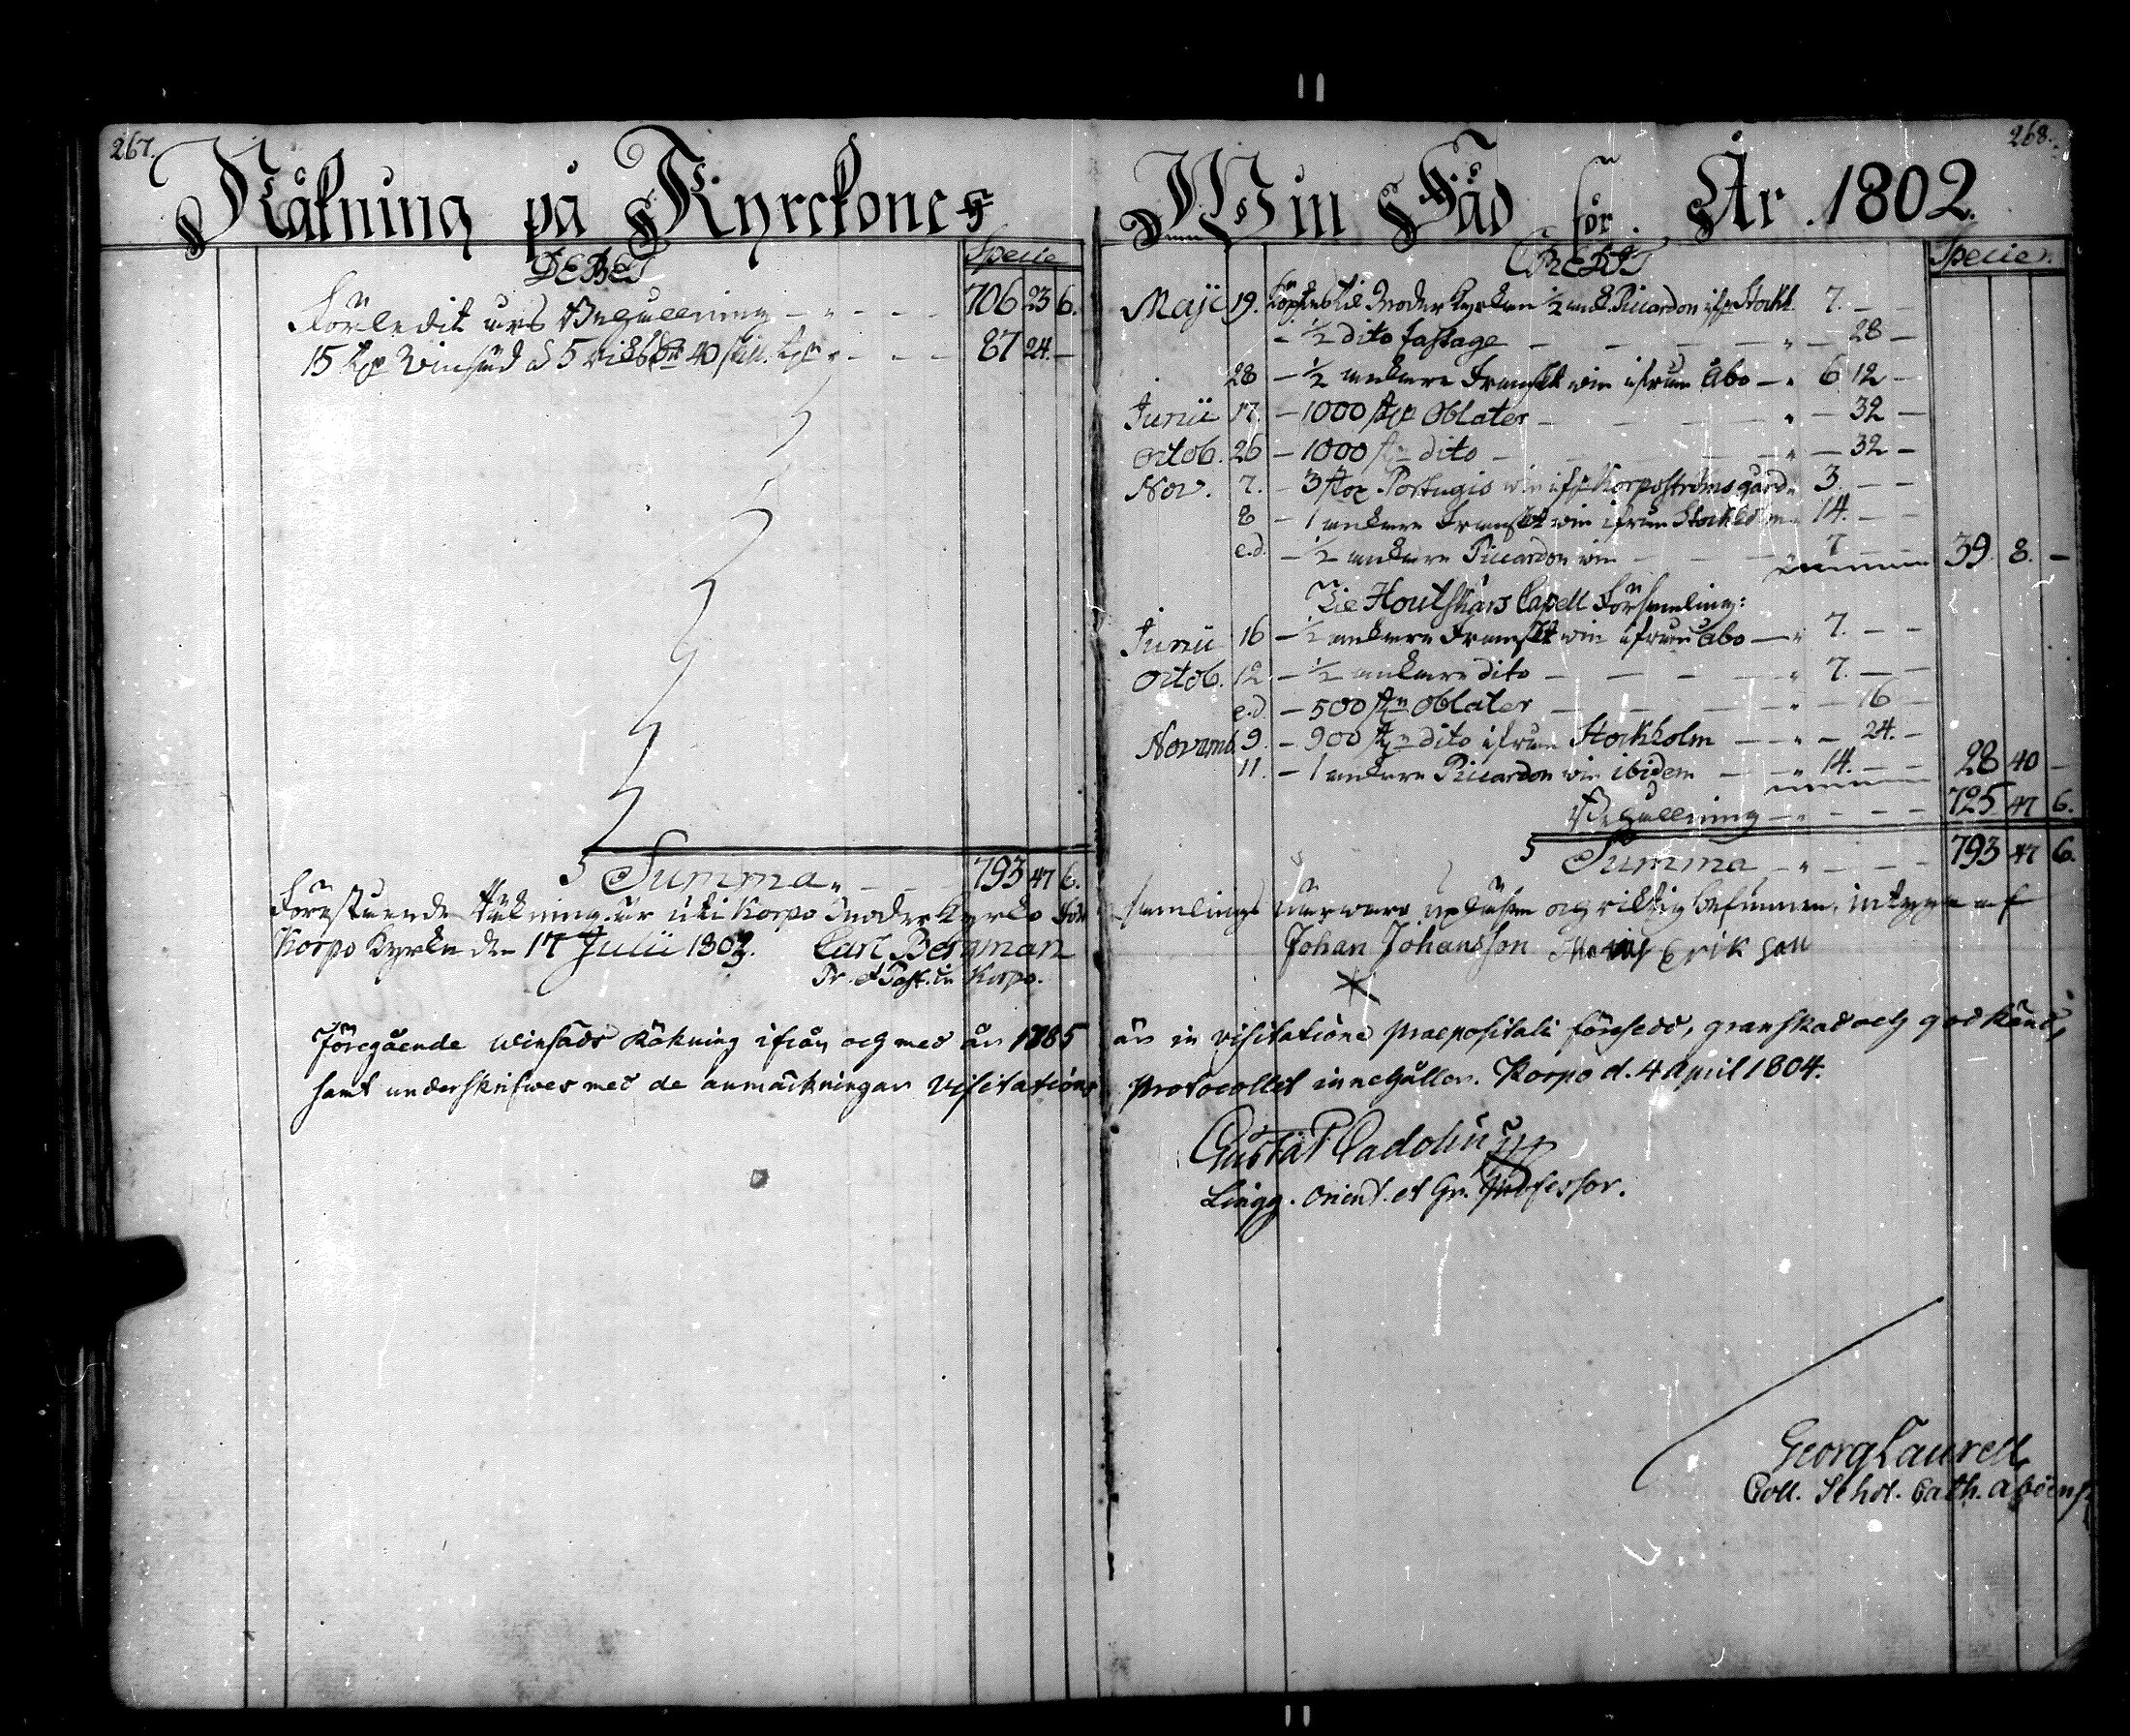 267.
Räkning på Kyrckones
DEBET
Specie
Förledit års Behållning 706 23 6.
15 Winsäd à 5 riksdr 40 skill. 87 24. —
Summa 793 47 6.
Förestående Räkning är uti Korpo Moder Kyrko För
Korpo Kyrka den 17 Julii 1803. Carl Bergman
Pr. et Past. in Korpo.
Föregående winsäds Räkning ifrån och med år 1785
samt underskrifwes med de anmärkningar Visitations
268.
Win Säd för År 1802.
CREDIT
Specie.
Maji 19. Köptes til Moder Kyrkan ½ ank. Piccardon ifr. Stockh. 7. — —
— ½ dito fastage — 28 —
28 — ½ ankare Franskt win ifrån Åbo — 6 12 —
Junii 17. — 1000 st Oblater — 32 —
Octob. 26 — 1000 st dito — 32 —
Nov. 7. — 3 stop Portugis win ifr Korpoströms gård 3. — —
8 — 1 ankare Franskt win ifrån Stockholm 14. — —
e.d. — ½ ankare Piccardon win 7 — — 39. 8. —
Til Houtskärs Capell Församling:
Junii 16 — ½ ankare Franskt win ifrån Åbo — 7. — —
Octob. 12 — ½ ankare dito — 7. —
e.d. — 500 st Oblater — 16
Novemb. 9. — 900 st dito ifrån Stockholm — 24. —
11. — 1 ankare Piccardon win ibidem — 14. — — 28 40 —
Behållning 725 47 6.
Summa 793 47 6.
samlings närwaro upläsen och riktig befunnen, intyga af
Johan Johansson Erik son
är in visitatione praepositali förehedd, granskad och godkänd,
Protocollet innehåller. Korpo d. 4 April 1804.
Gustaf Gadolin
Lingg. Orient. et Gr. Professor.
Georg Laurell
Coll. Schol. Cath. Aboens.